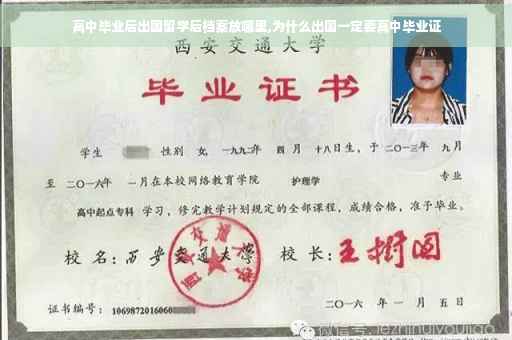 高中毕业后出国留学后档案放哪里,为什么出国一定要高中毕业证
西安交通大学
毕业证书
学生 性别 女,一九九二年 四月 十八日生,于二〇一三年 九月
至二〇一六年 一月在本校网络教育学院 护理学 专业
高中起点专科 学习,修完教学计划规定的全部课程,成绩合格,准予毕业。
校名:西安交通大学 校长:王树国
证书编号:1069872016060
二〇一六年一月五日
微信号:jiezhinuiyoujiao